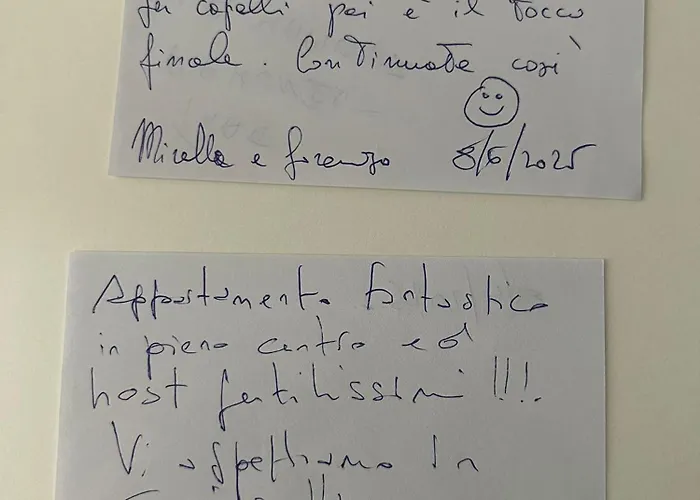 per capelli poi è il tocco
finale. Continuate così
Mirella e Lorenzo 8/6/2025
Appartamento fantastico
in pieno centro ed
host gentilissimi !!!.
Vi aspettiamo in